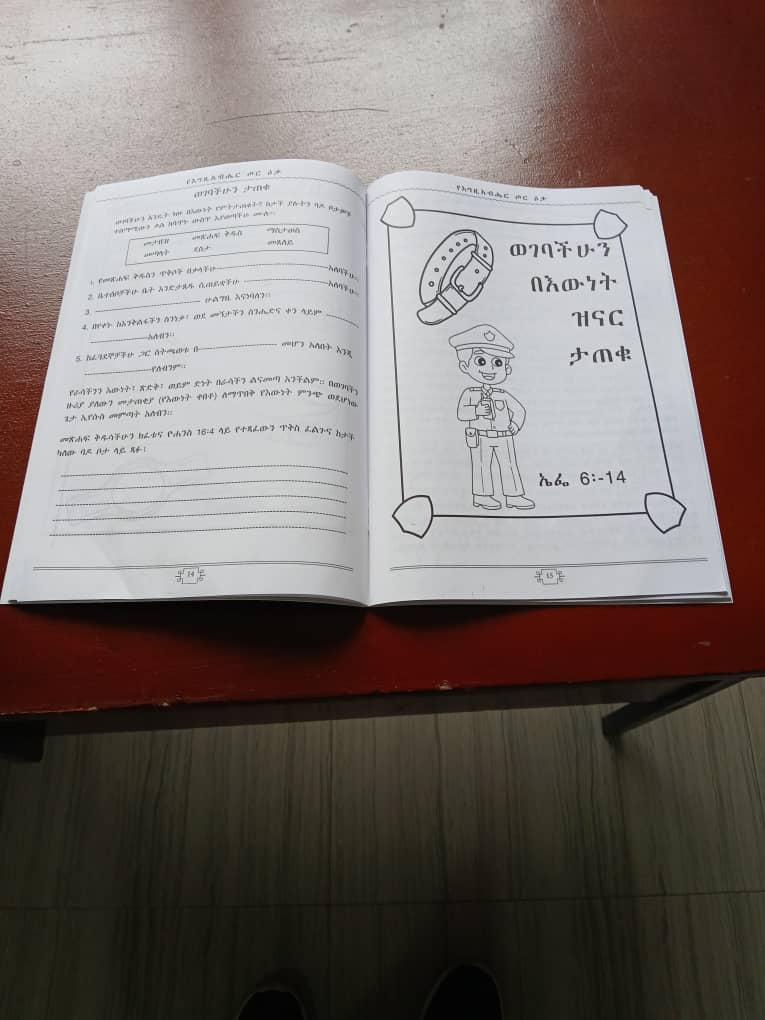 የእግዚአብሔር ጦር ዕቃ
ወገባችሁን ታጠቁ
ወገባችሁን እንዴት ነው በእውነት የምትታጠቁት፣ ከታች ያሉትን ባዶ ቦታዎች
ተስማሚውን ቃል ከሳጥኑ ውስጥ እያወጣችሁ ሙሉ።
መታዘዝ መጽሐፍ ቅዱስ ማስታወስ
መጣላት ደስታ መጸለይ
1. የመጽሐፍ ቅዱስን ጥቅሶች በቃላችሁ አለባችሁ።
2. ቤተሰቦቻችሁ ቤት እንድታጸዱ ሲጠይቋችሁ አለባችሁ።
3. ሁልግዜ እናነባለን።
4. በየቀኑ ከእንቅልፋችን ስንነቃ፣ ወደ መኝታችን ስንሔድና ቀን ላይም
አለብን።
5. ከፈጓደኞቻችሁ ጋር ስትጫወቱ በ መሆን አለበት እንጂ
የለብንም።
የራሳችንን እውነት፣ ጽድቅ፣ ወይም ድነት በራሳችን ልናመጣ አንችልም። በወገባችን
ዙሪያ ያለውን መታጠቂያ (የእውነት ቀበቶ) ለማጥበቅ የእውነት ምንጭ ወደሆነው
ጌታ ኢየሱስ መምጣት አለብን።
መጽሐፍ ቅዱሳችሁን ክፈቱና ዮሐንስ 16፡4 ላይ የተጻፈውን ጥቅስ ፈልጉና ከታች
ካለው ባዶ ቦታ ላይ ጻፉ፤
14
የእግዚአብሔር ጦር ዕቃ
ወገባችሁን
በእውነት
ዝናር
ታጠቁ
ኤፌ 6፡-14
15